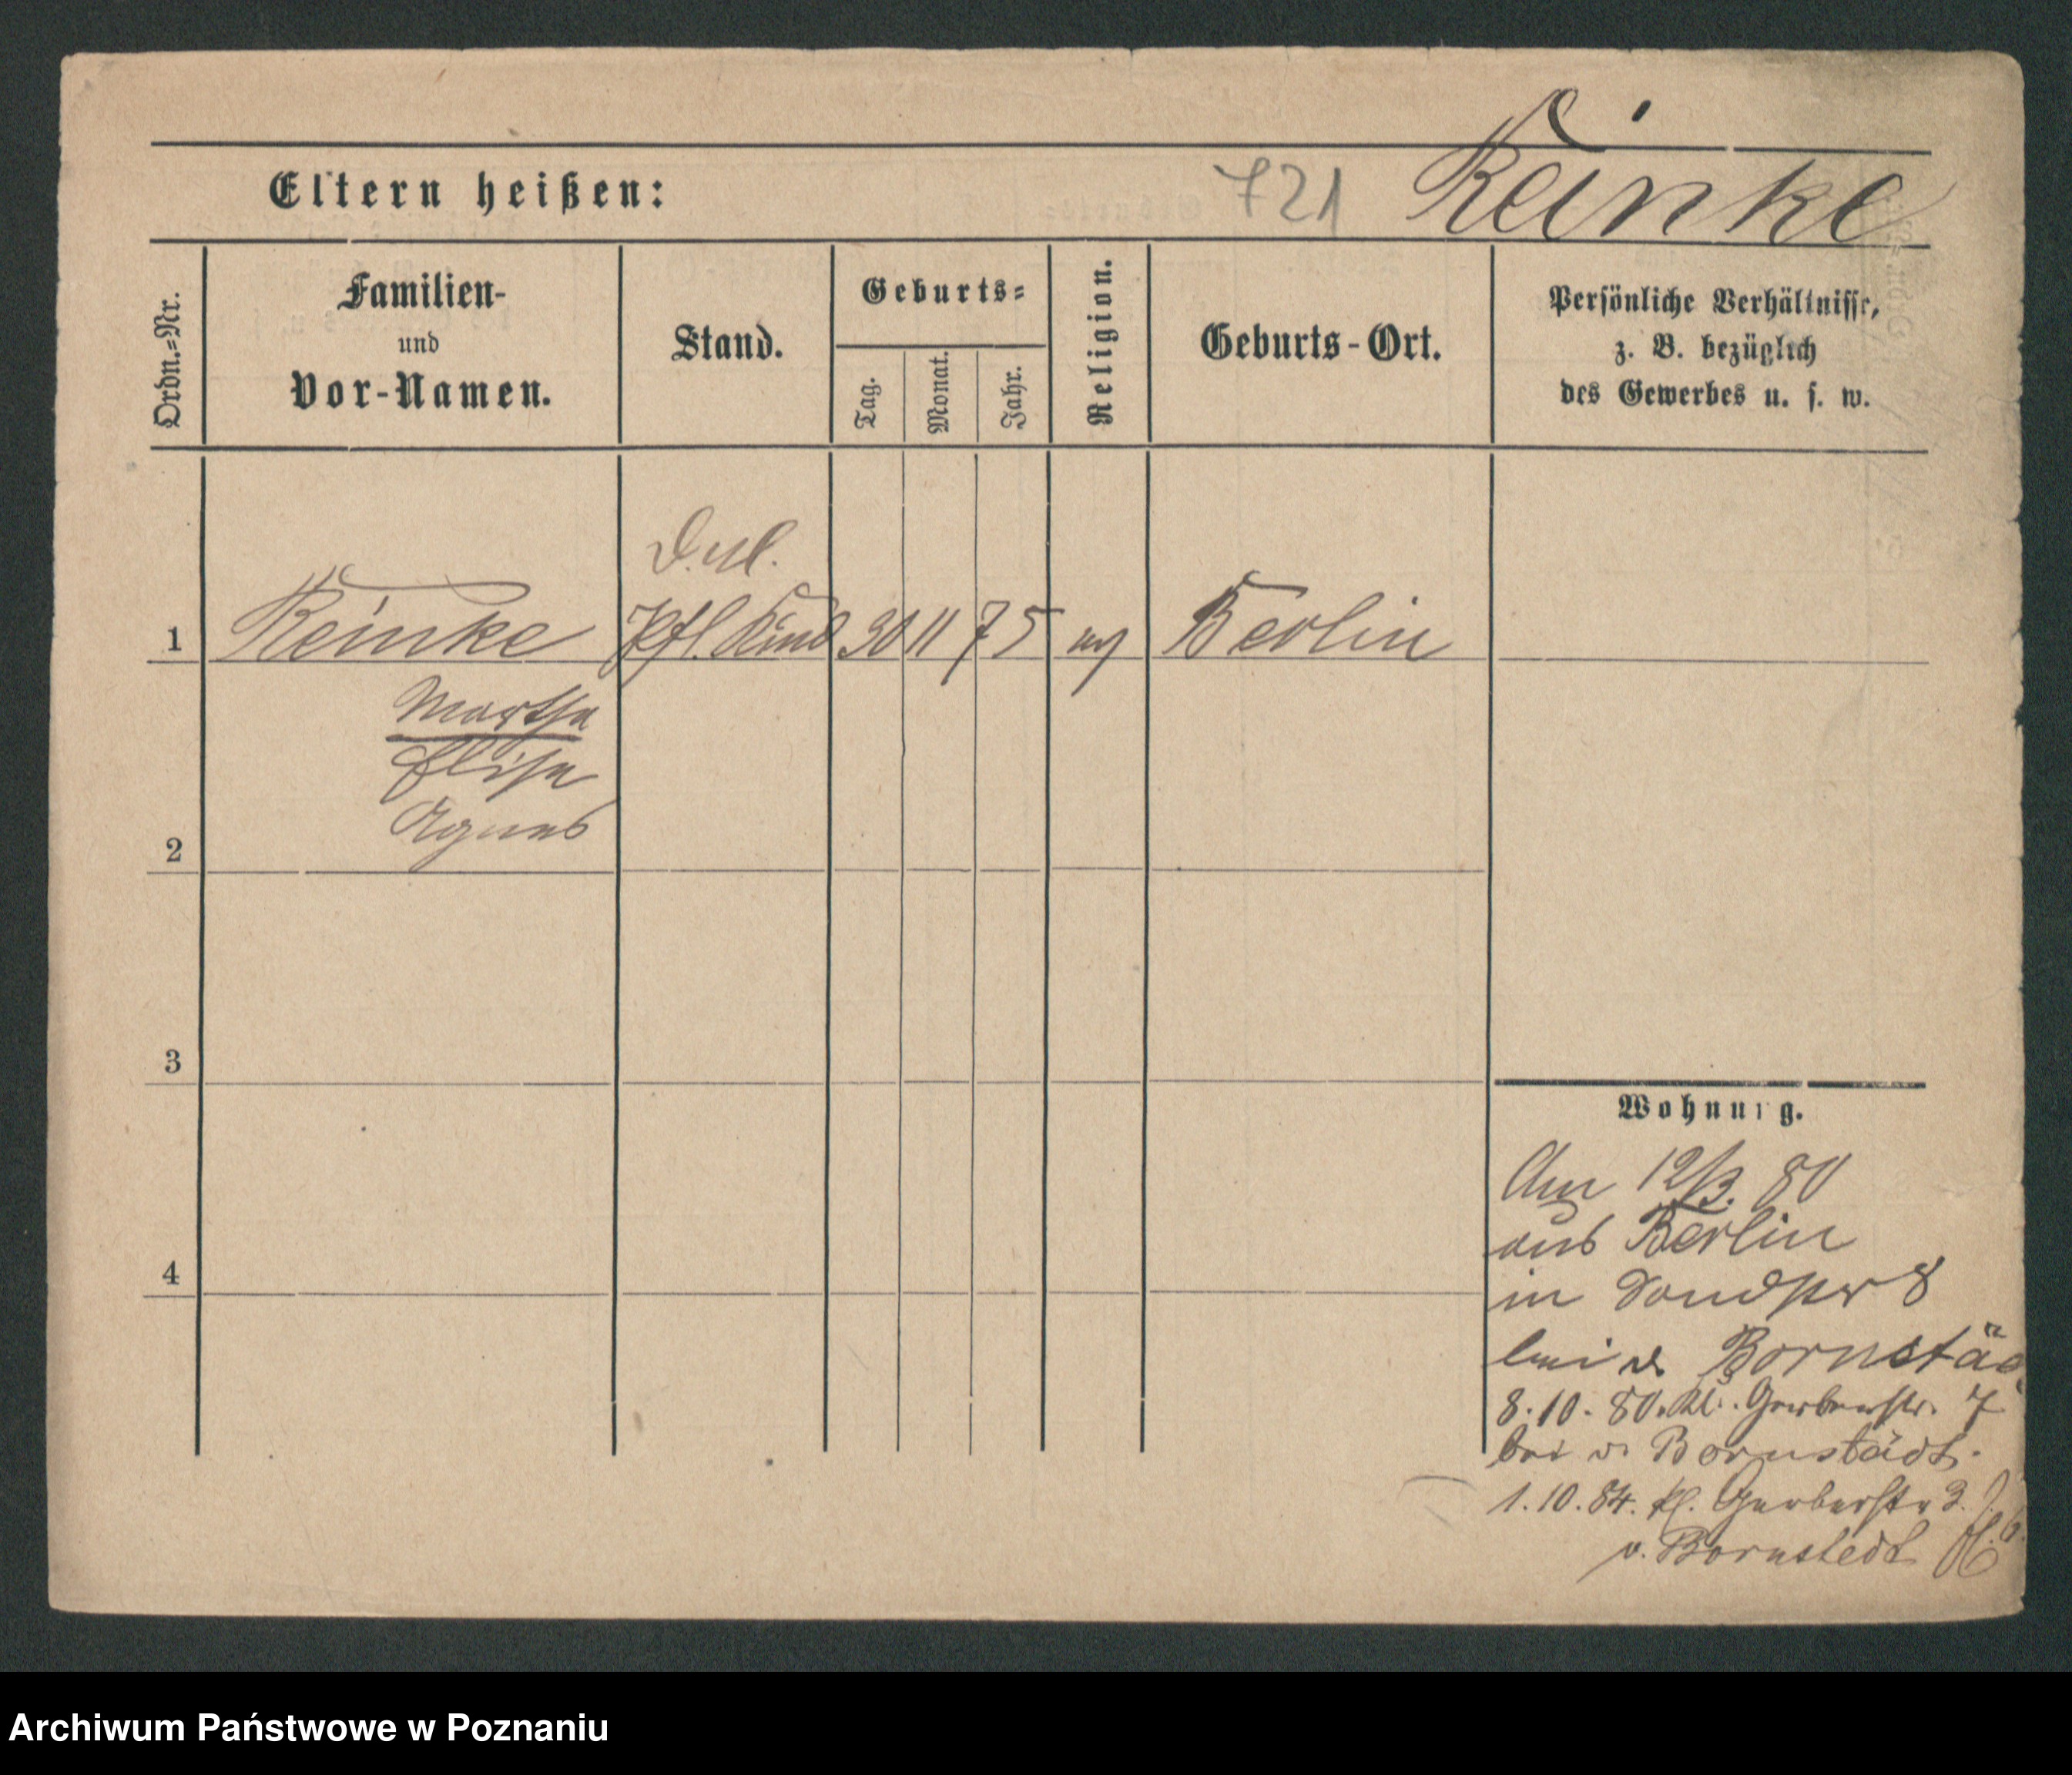 Reinke
Eltern heißen:
721
Ordn.=Nr.
Familien-
und
Vor-Namen.
Stand.
Geburts=
Tag.
Monat.
Jahr.
Religion.
Geburts-Ort.
Persönliche Verhältnisse,
z. B. bezüglich
des Gewerbes u. s. w.
1 Reinke Pfl. Kind 30 11 75 ev Berlin
Martha
Elise
Agnes
2
3
4
Wohnung.
Am 12/3. 80
aus Berlin
in Sandstr 8
bei v. Bornstäd
8.10.80. Kl. Gerberstr. 7
bei v. Bornstädt.
1.10.84. kl. Gerberstr 3.
v. Bornstedt
Archiwum Państwowe w Poznaniu